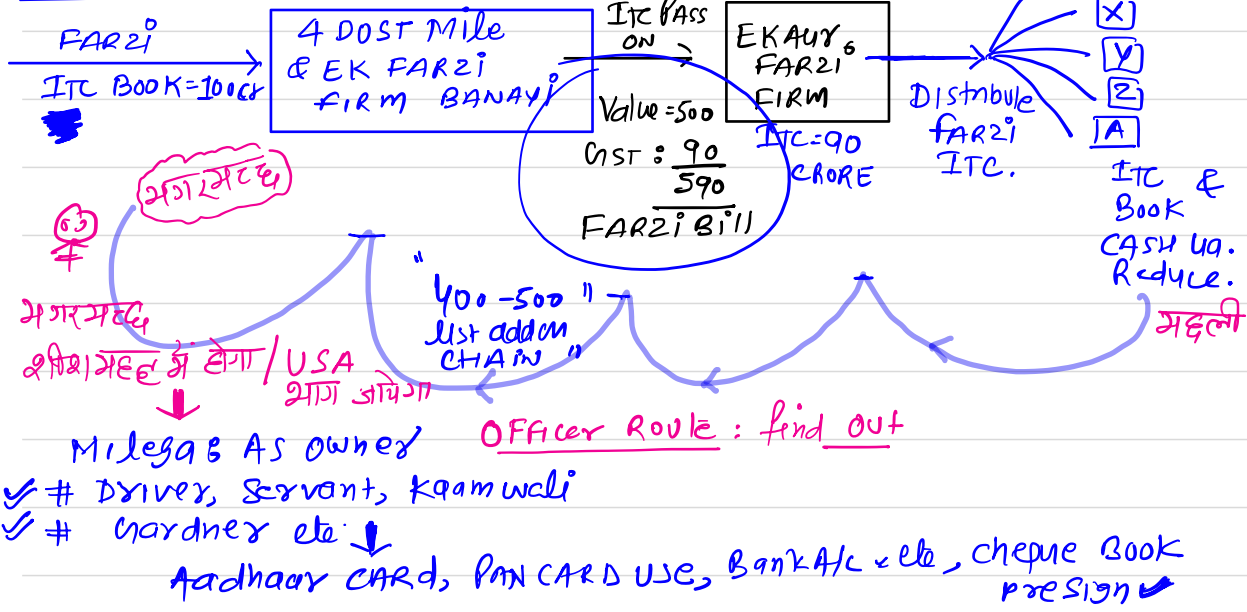 FARZi
ITC BOOK=100cr
4 DOST Mile
& EK FARZi
FIRM BANAYi
ITC PASS
ON
Value=500
GST : 90
590
FARZi Bill
EK AUR
FARZi
FIRM
ITC=90
CRORE
Distribute
FARZi
ITC.
X
Y
Z
A
ITC &
Book
CASH
Reduce.
मगरमच्छ
मगरमच्छ
शीशमहल में होगा / USA
भाग जायेगा
"400-500"
list add on
CHAIN"
मछली
OFFicer ROUTE : find OUT
Milega AS Owner
# Driver, Servant, Kaamwali
# Gardner etc.
Aadhaar CARD, PAN CARD USE, Bank A/c etc, Cheque Book
PreSign